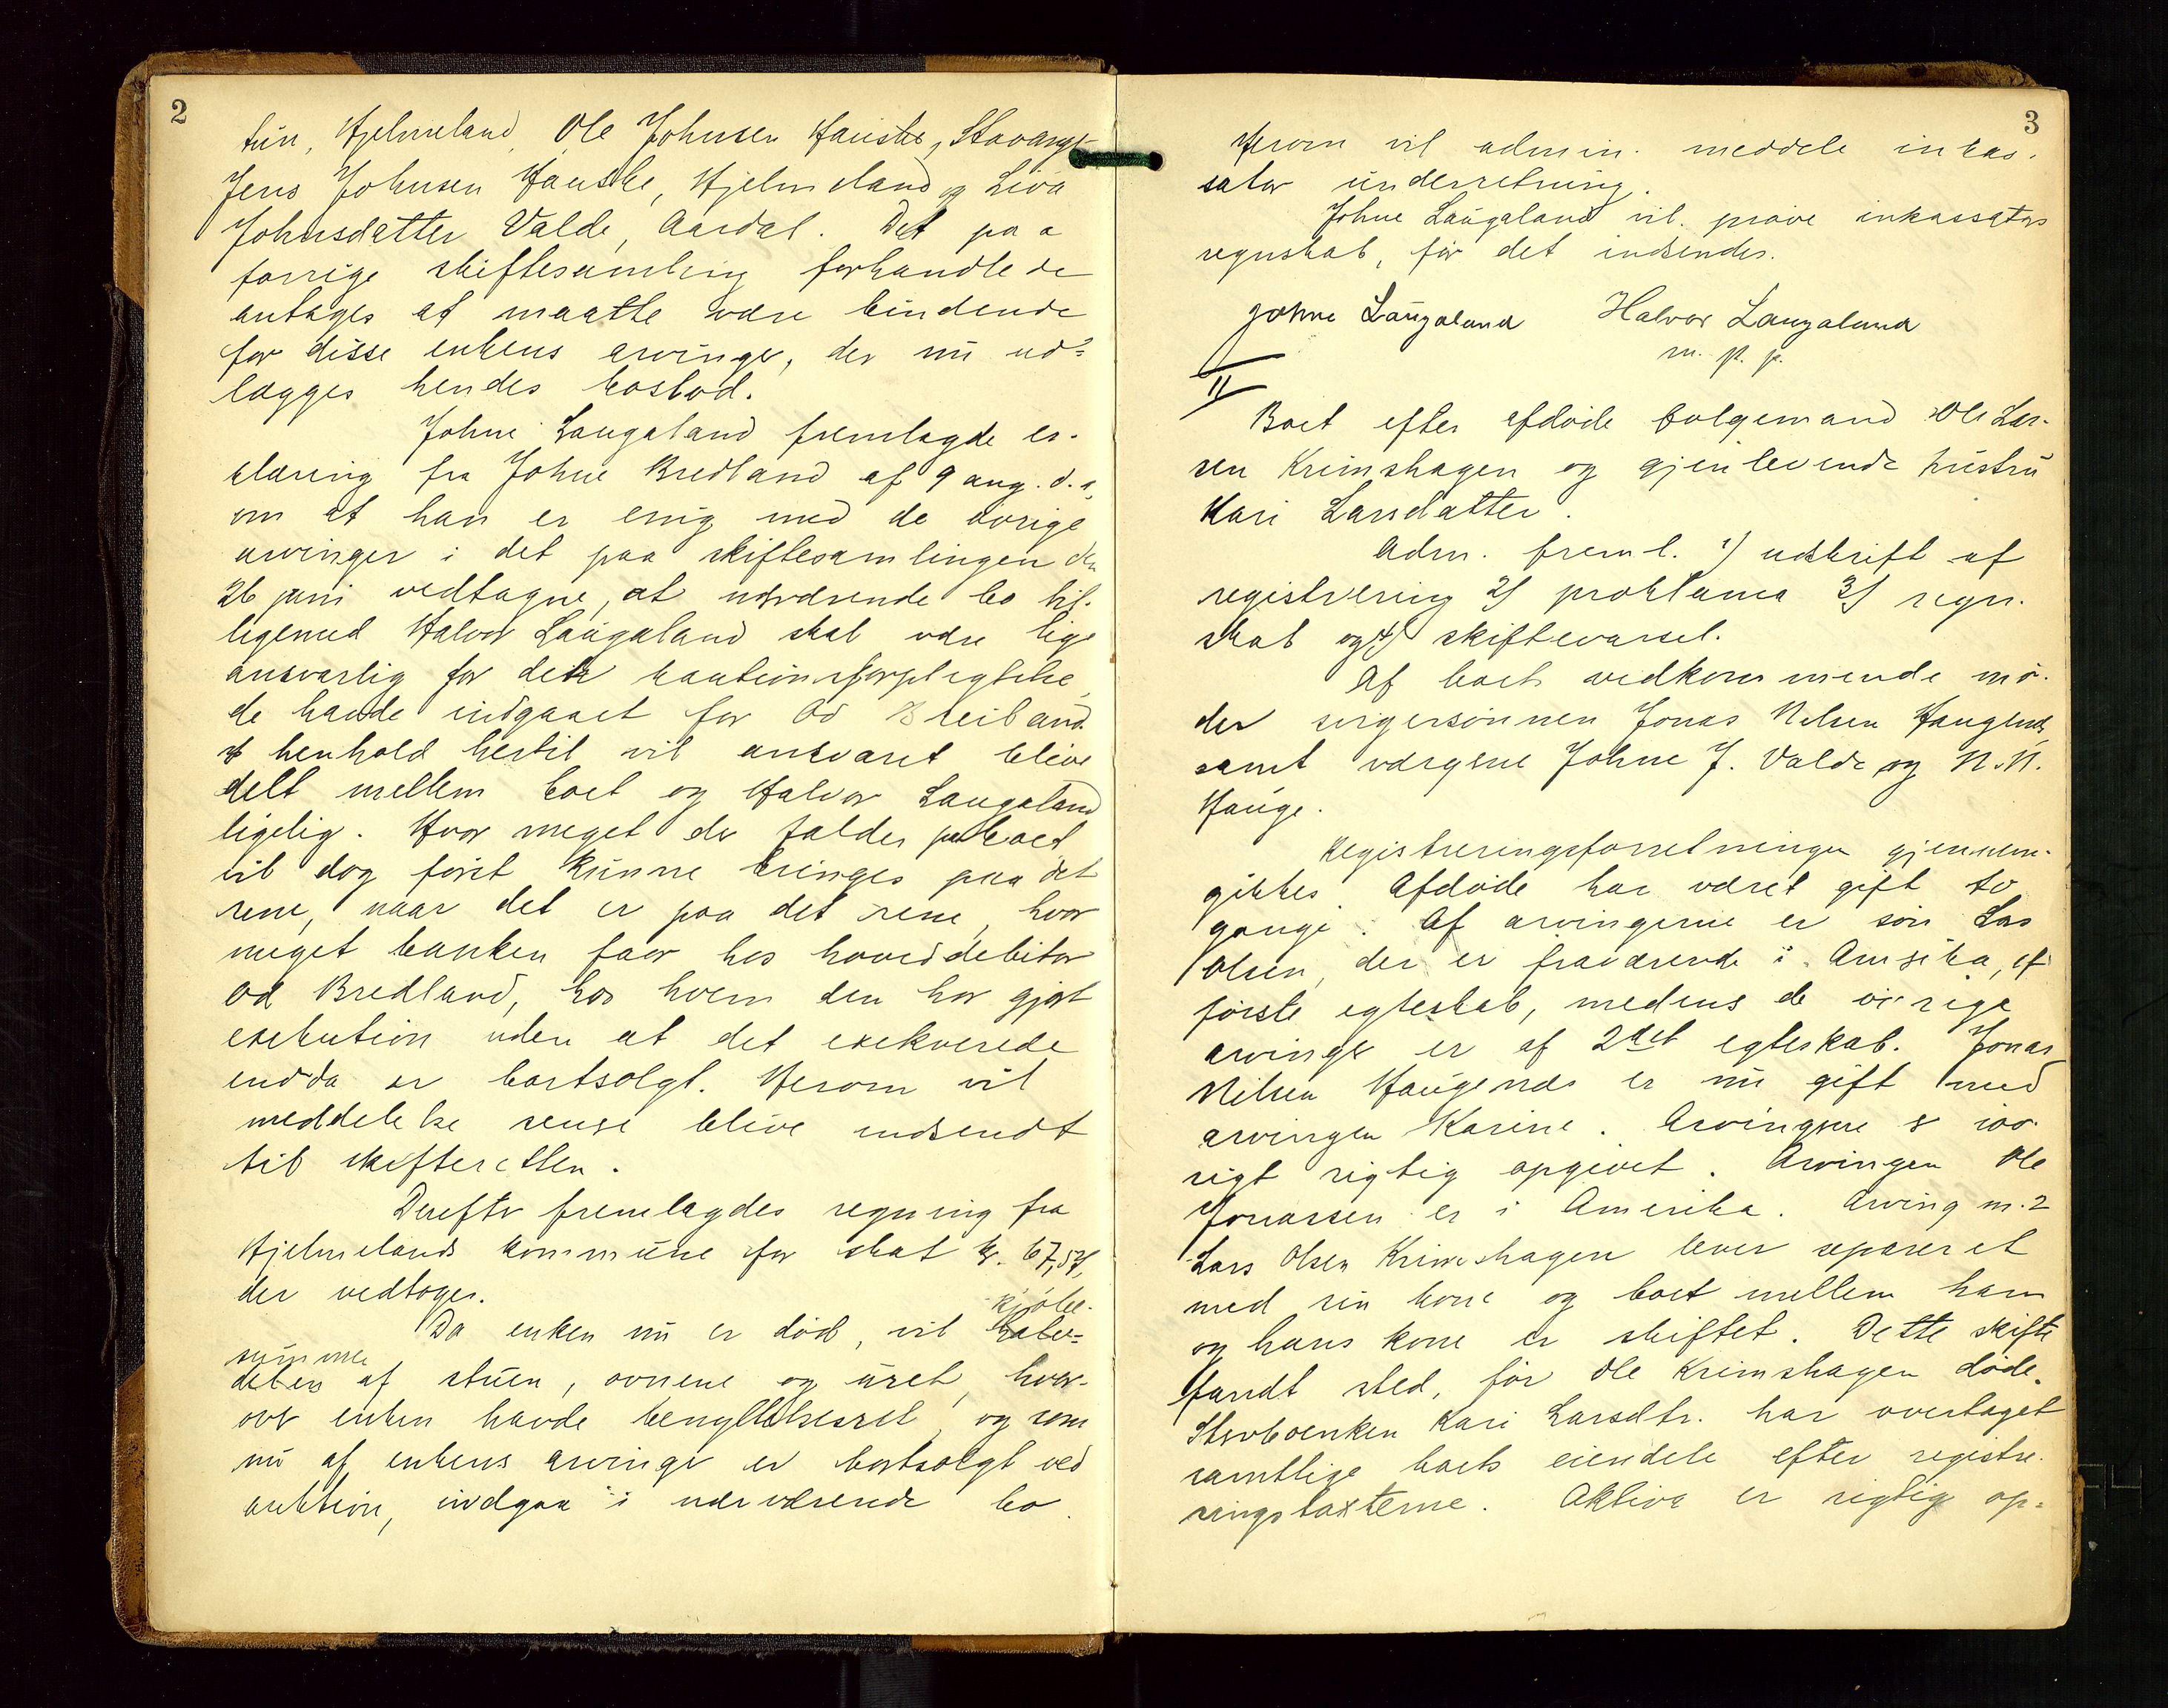 2
tun, Hjelmeland, Ole Johnsen Hauske, Stavanger
Jens Johnsen Hauske, Hjelmeland og Liva
Johnsdatter Valde, Aardal. Det paa
forrige skiftesamling forhandlede
antages at maatte være bindende
for disse enkens arvinger, der nu ud=
lægges hendes boslod.
Johne Laugaland fremlagde er-
klæring fra Johne Bredland af 9 aug. d.a.
om at han er enig med de øvrige
arvinger i det paa skiftesamlingen den
26 juni vedtagne, at nærværende bo til-
ligemed Halvor Laugaland skal være lige
ansvarlig for den kautionsforpligtelse
de havde indgaaet for Od Breiland.
I henhold hertil vil ansvaret blive
delt mellem boet og Halvor Laugaland
ligelig. Hvor meget der falder paa boet
vil dog først kunne bringes paa det
rene, naar det er paa det rene, hvor
meget banken faar hos hoveddebitor
Od Bredland, hos hvem den har gjort
exekution uden at det exekverede
endda er bortsolgt. Herom vil
meddelelse senge blive indsendt
til skifteretten.
Derefter fremlagdes regning fra
Hjelmelands kommune for skat kr. 67,54,
der vedtoges.
kjøbe-
Da enken nu er død, vil halv-
summen
delen af stuen, ovnene og uret, hvor-
over enken havde benyttelsesret og som
nu af enkens arvinger er bortsolgt ved
auktion, indgaa i nærværende bo.
3
Herom vil admin. meddele inkas-
sator underretning.
Johne Laugaland vil prøve inkassators
regnskab, før det indsendes.
Johne Laugaland Halvor Laugaland
m. p. p.
II
Boet efter afdøde folgemand Ole Lar-
sen Krimshagen og gjenlevende hustru
Kari Larsdatter.
Adm. freml. 1) udskrift af
registrering 2) proklama 3) regn-
skab og 4) skiftevarsel.
Af boets vedkommende mø-
der svigersønnen Jonas Nilsen Haugenes,
samt værgerne Johne J. Valde og N. N.
Hauge.
Registreringsforretningen gjennem-
gikkes. Afdøde har været gift to
gange. Af arvingerne er søn Lars
Olsen, der er fraværende i Amerika, af
første egteskab, medens de øvrige
arvinger er af 2det egteskab. Jonas
Nilsen Haugenes er nu gift med
arvingen Karine. Arvingerne er iøv-
rigt rigtig opgivet. Arvingen Ole
Jonassen er i Amerika. Arving nr. 2
Lars Olsen Krimshagen lever separeret
med sin kone og boet mellem ham
og hans kone er skiftet. Dette skifte
fandt sted, før Ole Krimshagen døde.
Stervboenken Kari Larsdtr. har overtaget
samtlige boets eiendele efter registre-
ringstaxterne. Aktiva er rigtig op=